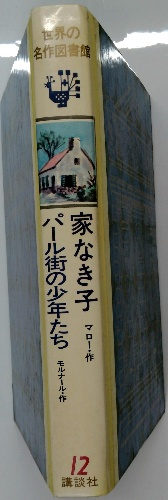 世界の
名作図書館
家なき子
マロー・作
パール街の少年たち
モルナール・作
12
講談社